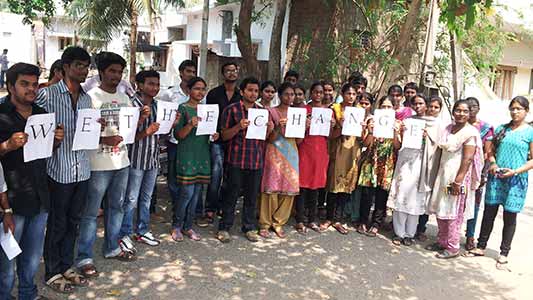 WE THE CHANGE